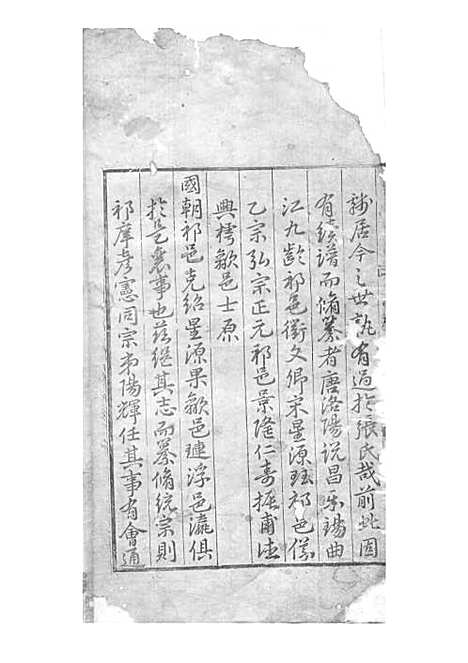 居今之世孰有過於張氏哉前此固
有續譜而脩纂者唐洛陽說昌朱瑒曲
江九齡祁邑衢文卿宋星源珐祁邑儀
乙宗弘宗正元祁邑景隆仁壽振甫法
興樗歙邑士原
國朝祁邑克紹星源果歙邑璉浮邑瀛俱
於是襄事也茲繼其志而纂脩統宗則
祁庠彥憲同宗弟陽輝任其事有會通